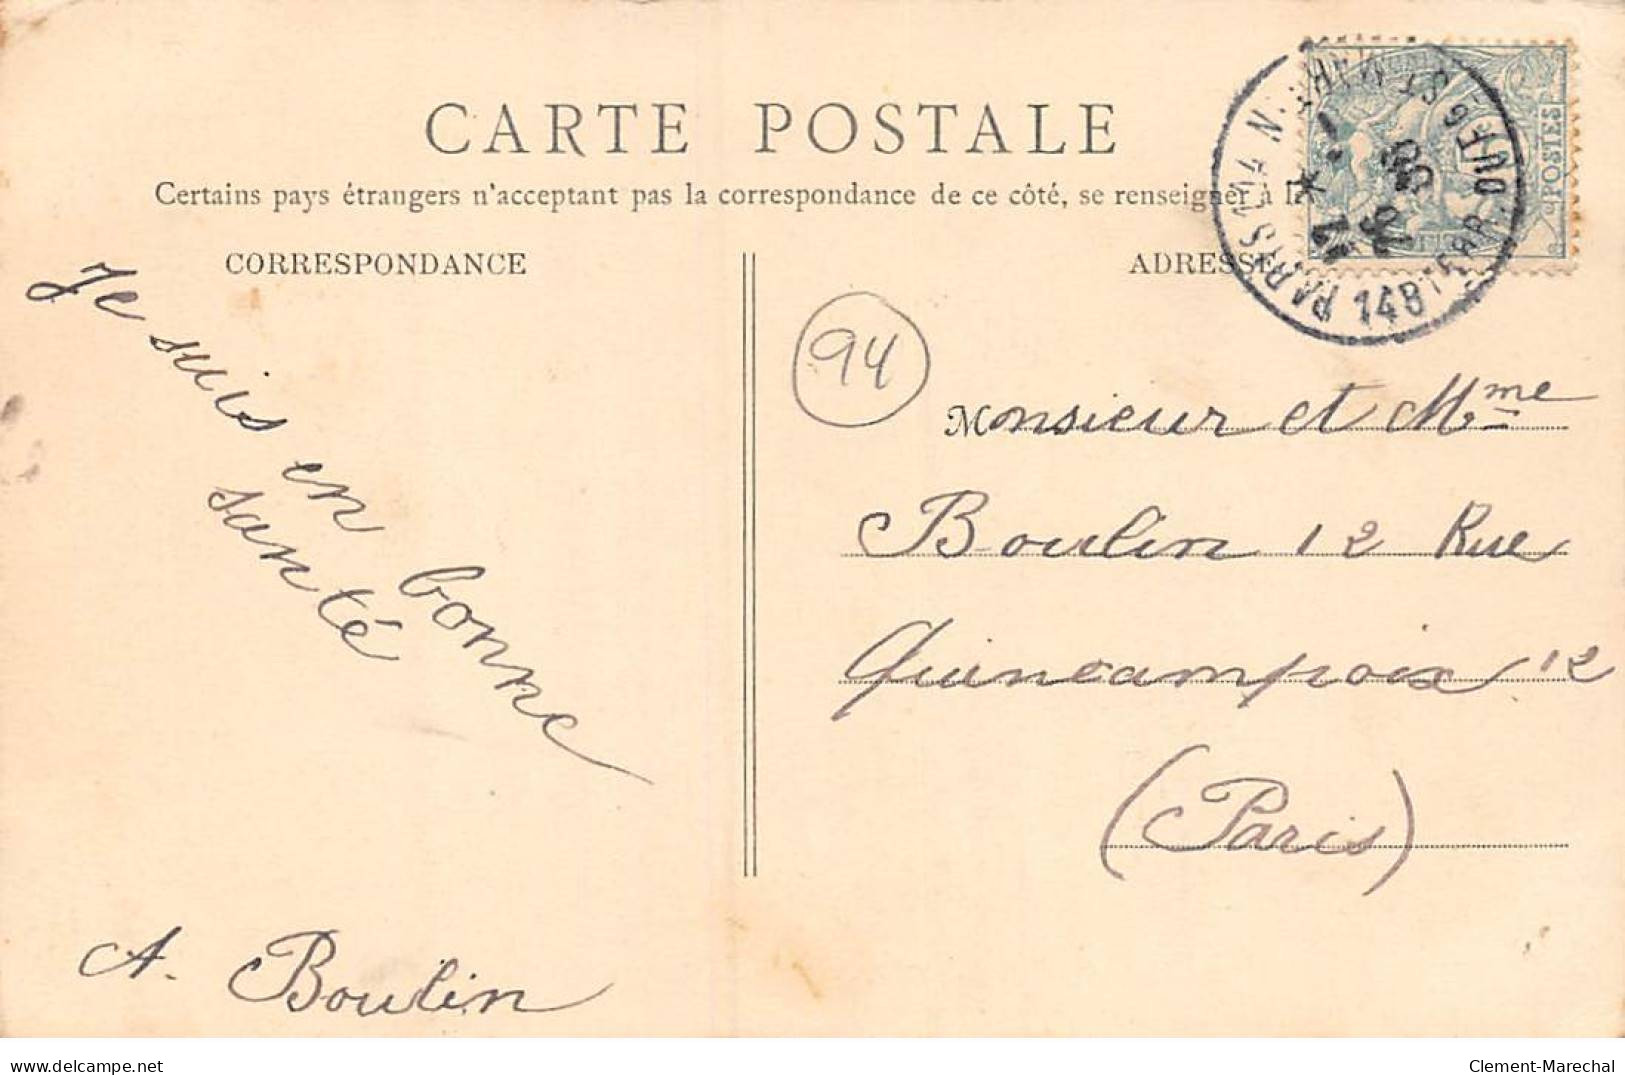 CARTE POSTALE
Certains pays étrangers n'acceptent pas la correspondance de ce côté, se renseigner à l
CORRESPONDANCE
Je suis en bonne
santé
A. Boulin
ADRESSE
94
Monsieur et Mme
Boulin 12 Rue
Quincampoix 12
(Paris)
POSTES
PARIS
148
delcampe.net
Clement-Marechal